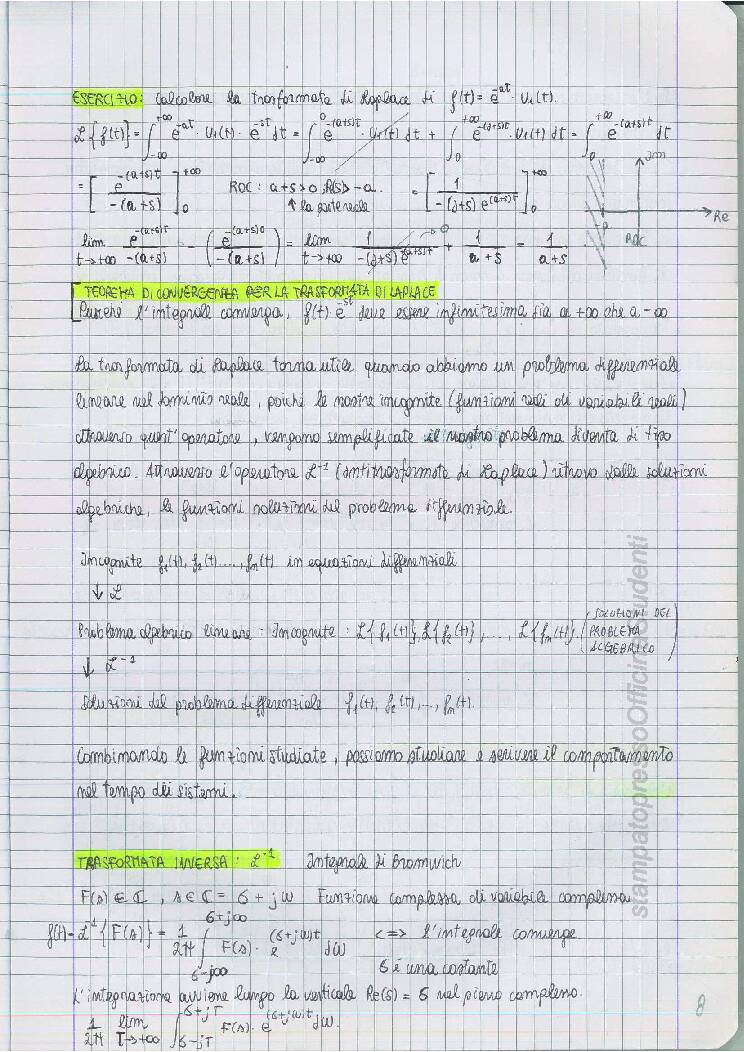 ESERCIZIO: Calcolare la trasformata di Laplace di f(t) = e^-at · U₁(t).
L{f(t)} = ∫_-∞^+∞ e^-at · U₁(t) · e^-st dt = ∫_-∞^0 e^-(a+s)t · U₁(t) dt + ∫_0^+∞ e^-(a+s)t · U₁(t) dt = ∫_0^+∞ e^-(a+s)t dt
= [ e^-(a+s)t / -(a+s) ]_0^+∞ ROC: a+s>0; R(s)>-a. = [ 1 / -(a+s) e^(a+s)t ]_0^+∞
↑ la parte reale
Im
Re
ROC
lim t→+∞ e^-(a+s)t / -(a+s) - ( e^-(a+s)0 / -(a+s) ) = lim t→+∞ 1 / -(a+s) e^(a+s)t → 0 + 1 / a+s = 1 / a+s
TEOREMA DI CONVERGENZA PER LA TRASFORMATA DI LAPLACE
Purché l'integrale converga, f(t) e^-st deve essere infinitesima sia a +∞ che a -∞
La trasformata di Laplace torna utile quando abbiamo un problema differenziale
lineare nel dominio reale, poiché le nostre incognite (funzioni reali di variabili reali)
attraverso quest'operatore, vengono semplificate il nostro problema diventa di tipo
algebrico. Attraverso l'operatore L^-1 (antitrasformata di Laplace) ritrovo dalle soluzioni
algebriche, le funzioni soluzioni del problema differenziale.
Incognite f₁(t), f₂(t) ...., fₙ(t) in equazioni differenziali
↓ L
Problema algebrico lineare - Incognite: L{f₁(t)}, L{f₂(t)}, ..., L{fₙ(t)}. (SOLUZIONI DEL
PROBLEMA
ALGEBRICO)
↓ L^-1
Soluzioni del problema differenziale f₁(t), f₂(t), ..., fₙ(t).
Combinando le funzioni studiate, possiamo studiare e scrivere il comportamento
nel tempo dei sistemi.
TRASFORMATA INVERSA: L^-1 Integrale di Bromwich
F(s) ∈ ℂ, s ∈ ℂ = σ + jω Funzione complessa di variabile complessa
f(t) = L^-1{F(s)} = 1/2π ∫_σ-j∞^σ+j∞ F(s) · e^(σ+jω)t dω <=> l'integrale converge
σ è una costante
L'integrazione avviene lungo la verticale Re(s) = σ nel piano complesso.
1/2π lim T→+∞ ∫_σ-jT^σ+jT F(s) · e^(σ+jω)t dω.
8
stampatopressoOfficinaStudenti